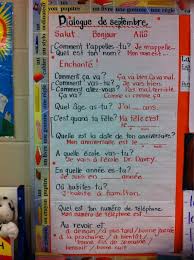 Dialogue de septembre.
Salut Bonjour Allô
Comment t'appelles-tu? Je m'appelle...
Quel est ton nom? Mon nom est...
Enchanté!
Comment ça va? Ça va bien/ça va mal.
Comment vas-tu? Je vais bien
Ça va?
Quel âge as-tu? J'ai ... ans.
C'est quand ta fête? Ma fête c'est
Quelle est la date de ton anniversaire?
Mon anniversaire est le...
À quelle école vas-tu?
Je vais à l'école Dr. Davey.
En quelle année es-tu?
Je suis en ... année
Où habites-tu?
J'habite à Hamilton.
Quel est ton numéro de téléphone?
Mon numéro de téléphone est...
Au revoir et
à demain / à plus tard / à bientôt /
bonne journée / bonne
bonne fin de semaine
bonsoir / bonne nuit